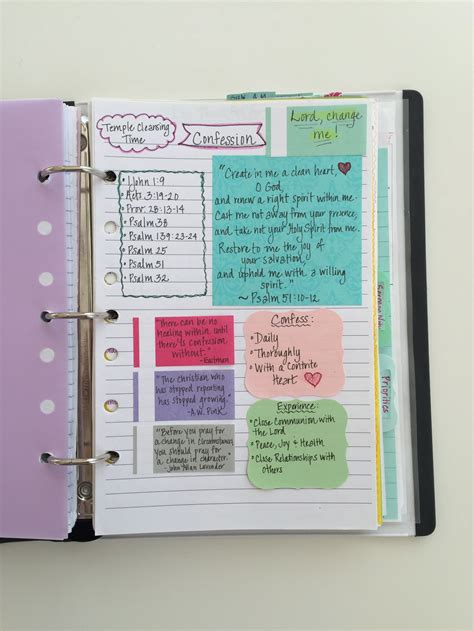 Temple Cleansing
Time
Confession
Lord, change
me!
1 John 1:9
Acts 3:19-20
Prov. 28:13-14
Psalm 38
Psalm 139:23-24
Psalm 25
Psalm 51
Psalm 32
"Create in me a clean heart,
O God,
and renew a right spirit within me.
Cast me not away from your presence,
and take not your Holy Spirit from me.
Restore to me the joy of
your salvation,
and uphold me with a willing
spirit."
~ Psalm 51:10-12
"There can be no
healing within until
there is confession
without."
-Eastman
"The Christian who
has stopped repenting
has stopped growing."
-A.W. Pink
"Before you pray for
a change in circumstances,
you should pray for
a change in character.
-John Allan Lavender
Confess:
Daily
Thoroughly
With a contrite
Heart
Experience:
Close Communion with
the Lord
Peace, Joy & Health
Close Relationships with
others
Priorities